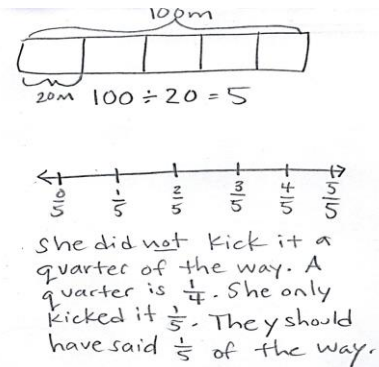 100m
20m 100 ÷ 20 = 5
0/5 1/5 2/5 3/5 4/5 5/5
She did not kick it a
quarter of the way. A
quarter is 1/4. She only
kicked it 1/5. They should
have said 1/5 of the way.